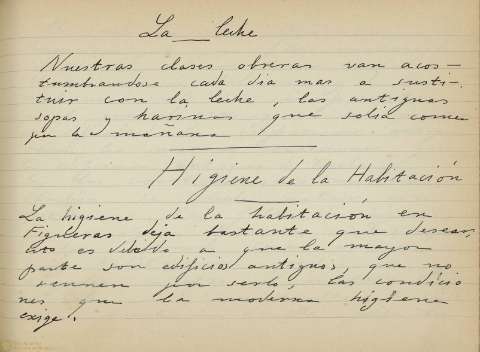 La leche
Nuestras clases obreras van acos-
tumbrandose cada dia mas a susti-
tuir con la leche, las antiguas
sopas y harinas que solia comer
por la mañana
Higiene de la Habitación
La higiene de la habitación en
Figueras deja bastante que desear,
esto es debido a que la mayor
parte son edificios antiguos, que no
reunen por serlo, las condicio
nes que la moderna higiene
exige.